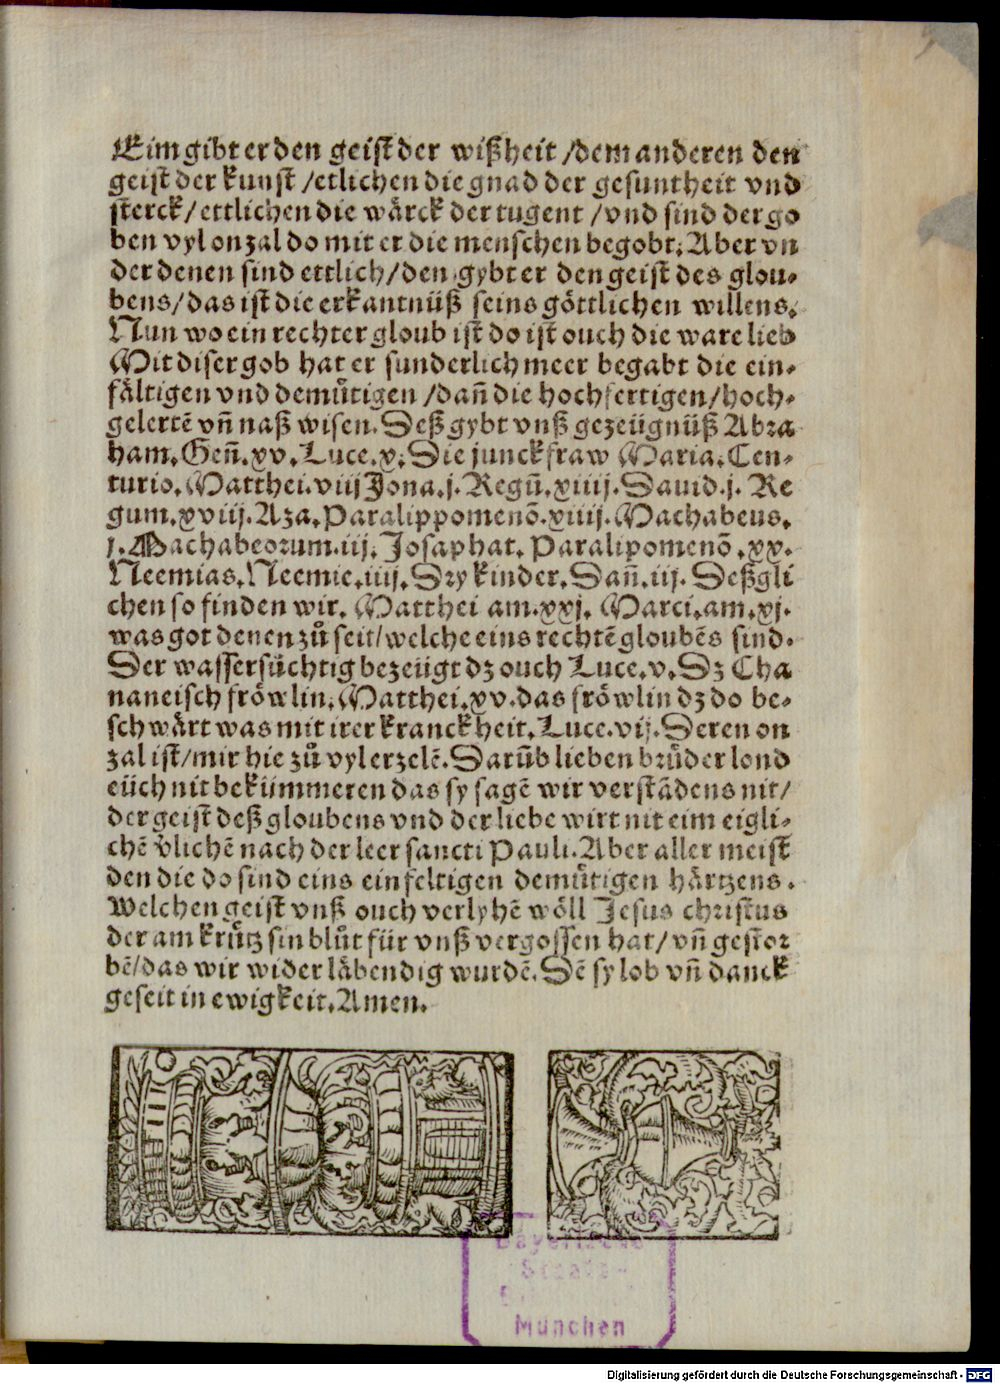 Eim gibt er den geist der wißheit /dem anderen den
geist der kunst /etlichen die gnad der gesuntheit vnd
sterck/ ettlichen die wärck der tugent /vnd sind der go
ben vyl on zal do mit er die menschen begobt. Aber vn
der denen sind ettlich/den gybt er den geist des glou⸗
bens/das ist die erkantnüß seins göttlichen willens.
Nun wo ein rechter gloub ist do ist ouch die ware lieb
Mit diser gob hat er sunderlich meer begabt die ein⸗
fältigen vnd demuͤtigen /dañ die hochfertigen/hoch⸗
gelertē vñ naß wisen. Deß gybt vnß gezeügnüß Abra
ham. Geñ. xv. Luce. x. Die junckfraw Maria. Cen⸗
turio. Matthei. viij Jona. j. Regū. xiiij. Dauid. j. Re
gum. xviij. Aza. Paralippomenō. xiiij. Machabeus.
j. Machabeorum. iij. Josaphat. Paralipomenō. xx.
Neemias. Neemie. iiij. Dry kinder. Dañ. iij. Deßgli
chen so finden wir. Matthei am. xxj. Marci. am. xj.
was got denen zuͦ seit/welche eins rechtē gloubēs sind.
Der wassersüchtig bezeügt dz ouch Luce. v. Dz Cha
naneisch fröwlin. Matthei. xv. das fröwlin dz do be⸗
schwärt was mit irer kranckheit. Luce. vij. Deren on
zal ist/mir hie zuͦ vyl erzelē. Darūb lieben bruͤder lond
eüch nit bekümmeren das sy sagē wir verstādens nit/
der geist deß gloubens vnd der liebe wirt nit eim eigli⸗
chē vlichē nach der leer sancti Pauli. Aber aller meist
den die do sind eins einfeltigen demuͤtigen härtzens.
Welchen geist vnß ouch verlyhē wöll Jesus christus
der am krütz sin bluͦt für vnß vergossen hat/vñ gestor
bē/das wir wider läbendig wurdē. Dē sy lob vñ danck
geseit in ewigkeit. Amen.
Bayerische
Staats-
München
Digitalisierung gefördert durch die Deutsche Forschungsgemeinschaft - DFG